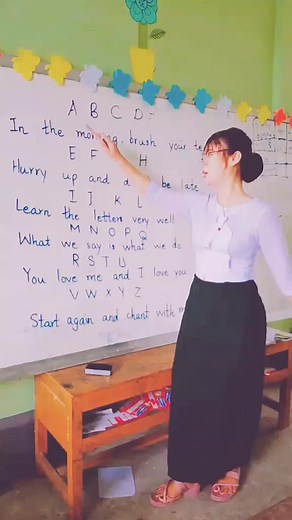 A B C D
In the morning, brush your
E F H
Hurry up and be late
I J K L
Learn the letters very well
M N O P Q
What we say is what we do
R S T U
You love me and I love you
V W X Y Z
Start again and chant with